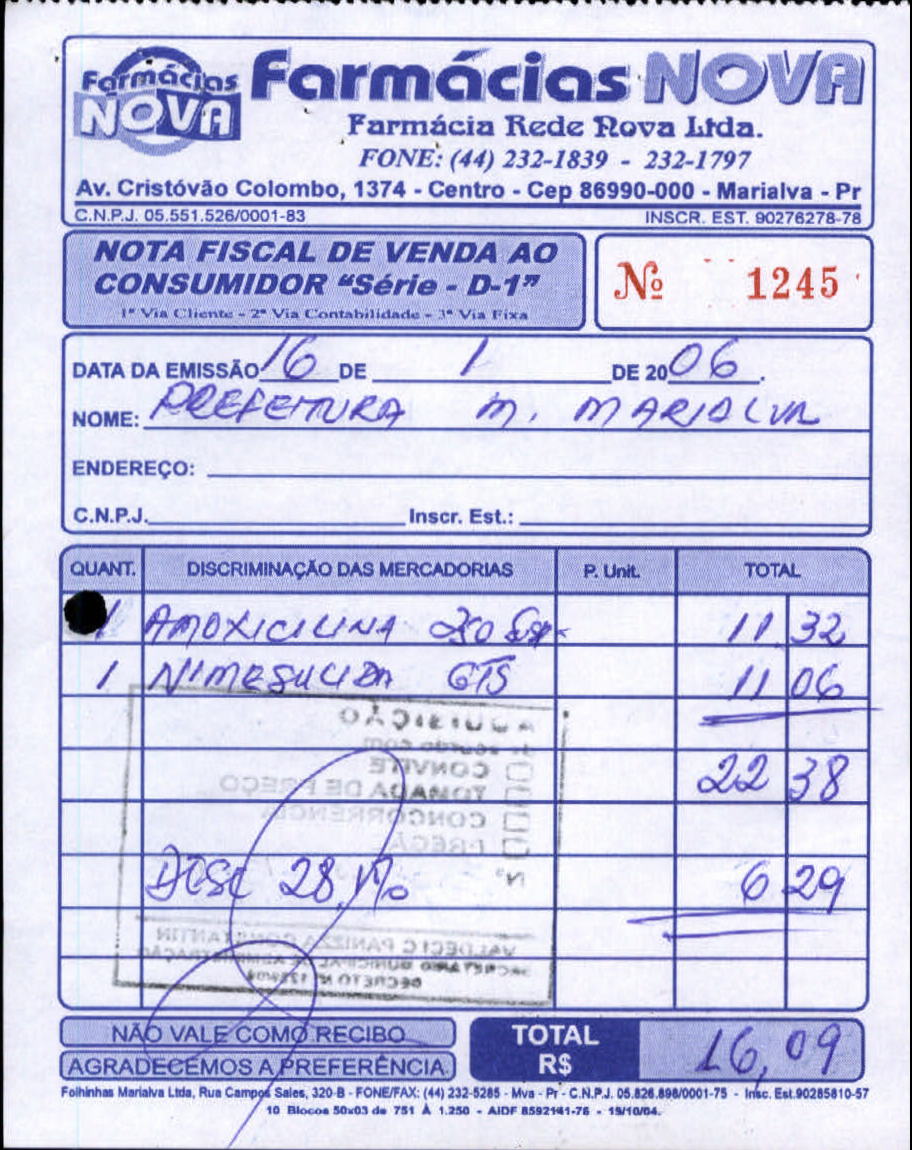 Farmácias NOVA
Farmácias NOVA
Farmácia Rede Nova Ltda.
FONE: (44) 232-1839 - 232-1797
Av. Cristóvão Colombo, 1374 - Centro - Cep 86990-000 - Marialva - Pr
C.N.P.J. 05.551.526/0001-83 INSCR. EST. 90276278-78
NOTA FISCAL DE VENDA AO
CONSUMIDOR "Série - D-1"
1ª Via Cliente - 2ª Via Contabilidade - 3ª Via Fixa
Nº 1245
DATA DA EMISSÃO 16 DE 1 DE 2006.
NOME: PREFEITURA M. MARIALVA
ENDEREÇO:
C.N.P.J. Inscr. Est.:
QUANT. DISCRIMINAÇÃO DAS MERCADORIAS P. Unit. TOTAL
1 AMOXICILINA 11 32
1 NIMESULIDA GTS 11 06
AQUISIÇÃO
de acordo com
CONVITE
22 38
TOMADA DE PREÇO
CONCORRÊNCIA
PREGÃO
Nº
DESC 28,1% 6 29
VALDECI C PANIZZA CONSTANTIN
SECRETARIO MUNICIPAL DE ADMINISTRAÇÃO
DECRETO Nº
NÃO VALE COMO RECIBO
AGRADECEMOS A PREFERÊNCIA
TOTAL R$ 16,09
Folhinhas Marialva Ltda, Rua Campos Sales, 320-B - FONE/FAX: (44) 232-5285 - Mva - Pr - C.N.P.J. 05.826.898/0001-75 - Insc. Est.90285810-57
10 Blocos 50x03 de 751 À 1.250 - AIDF 8592141-76 - 19/10/04.